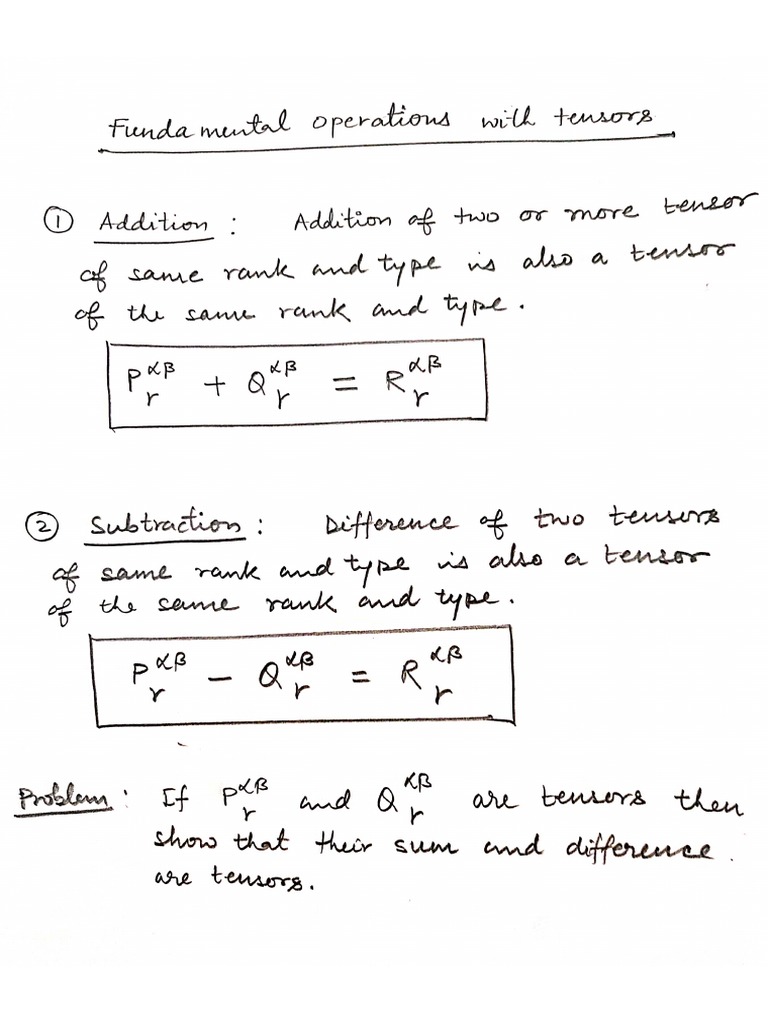 Fundamental operations with tensors
① Addition : Addition of two or more tensor
of same rank and type is also a tensor
of the same rank and type.
P^αβ_r + Q^αβ_r = R^αβ_r
② Subtraction : Difference of two tensors
of same rank and type is also a tensor
of the same rank and type.
P^αβ_r − Q^αβ_r = R^αβ_r
Problem : If P^αβ_r and Q^αβ_r are tensors then
show that their sum and difference
are tensors.